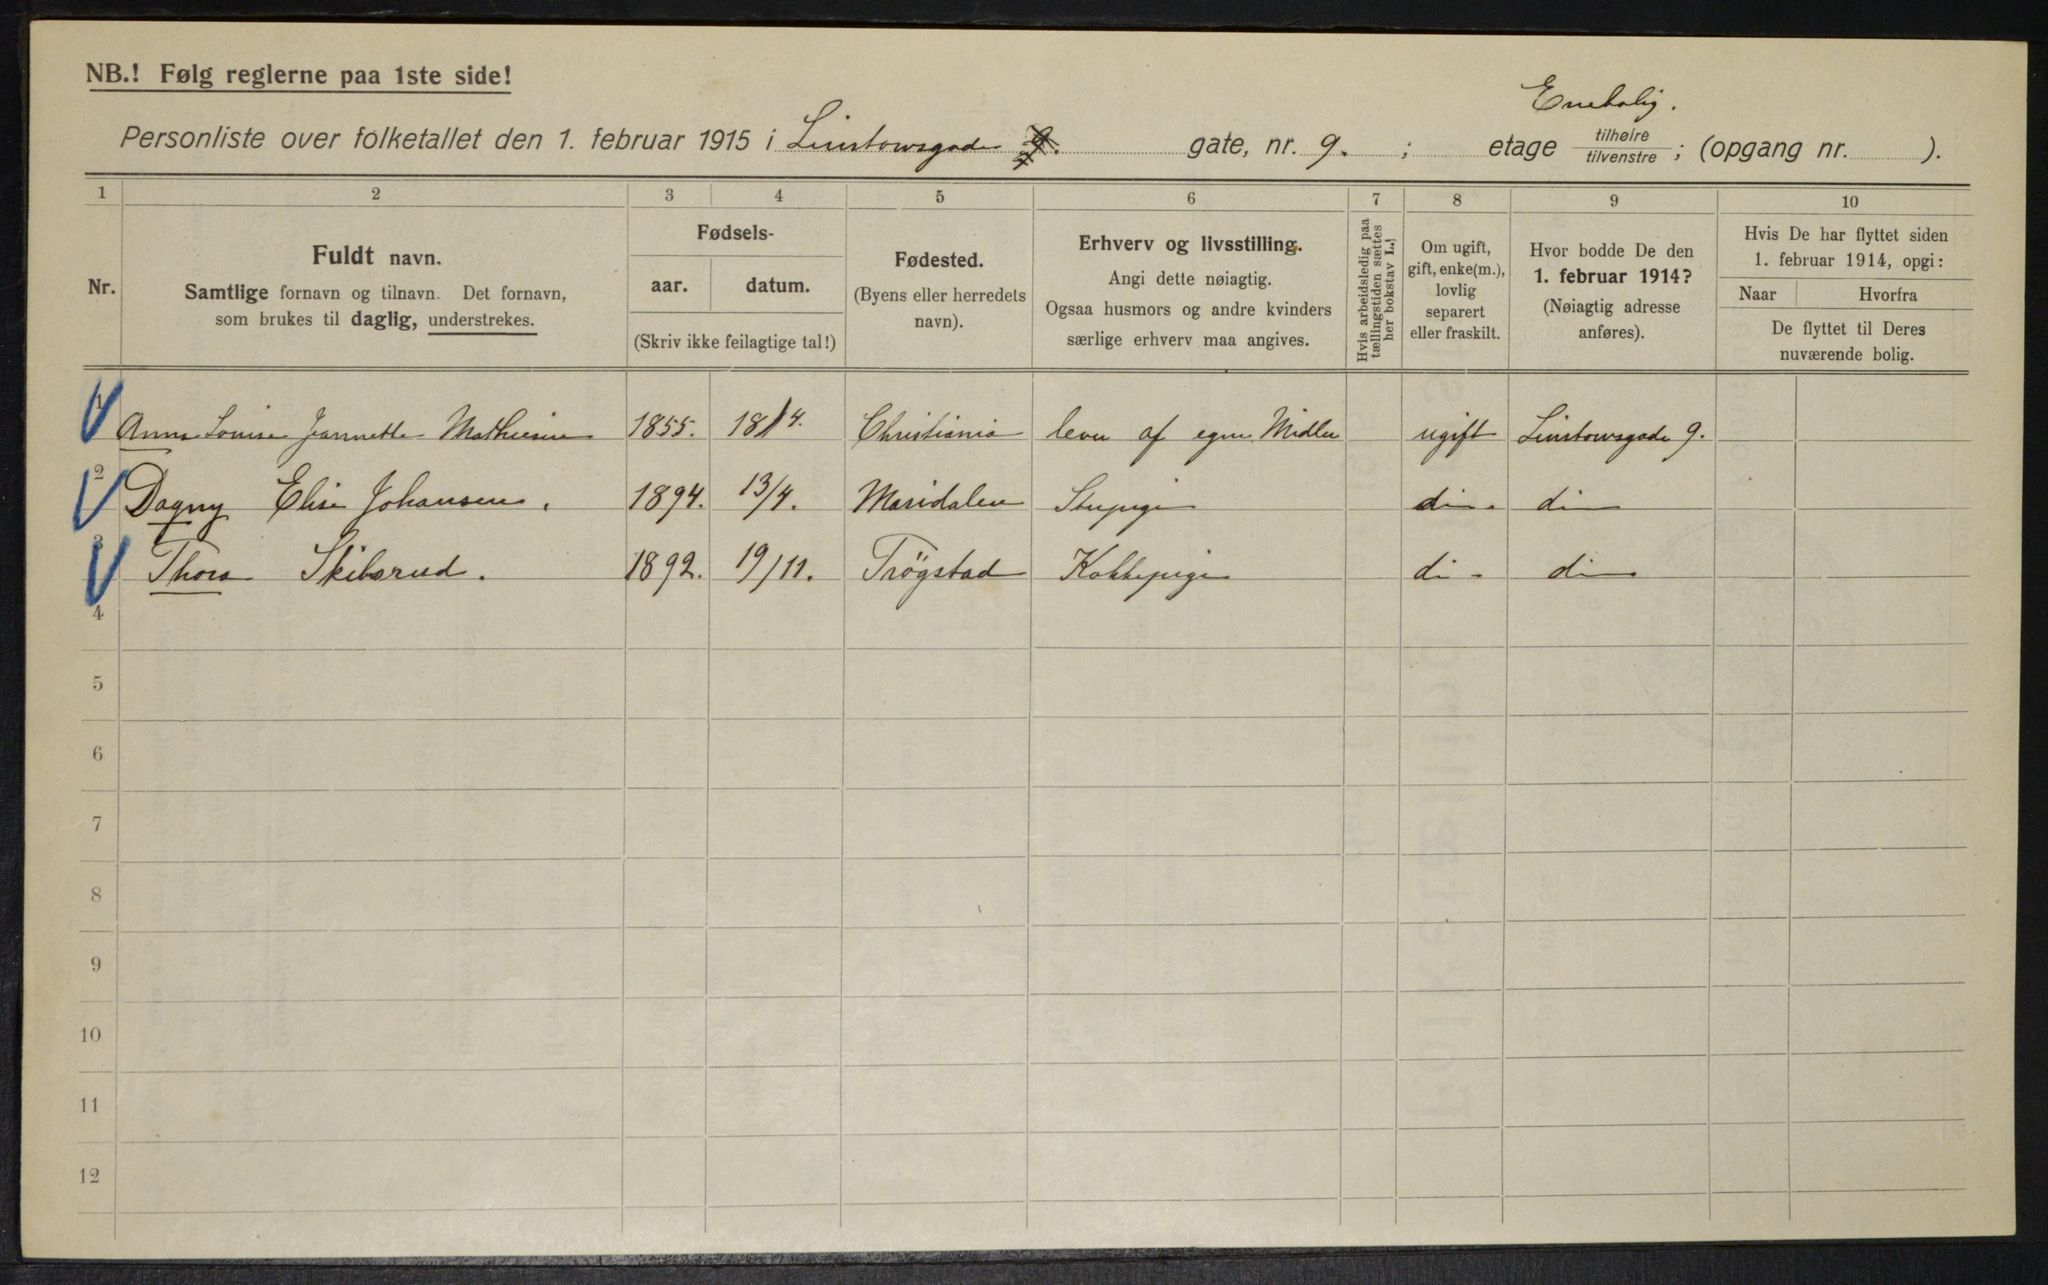 NB.! Følg reglerne paa 1ste side!
Enebolig.
Personliste over folketallet den 1. februar 1915 i Linstowsgade 9. gate, nr. 9. ; etage tilhøire/tilvenstre ; (opgang nr. ).
1 2 3 4 5 6 7 8 9 10
Nr.
Fuldt navn.
Samtlige fornavn og tilnavn. Det fornavn,
som brukes til daglig, understrekes.
Fødsels-
aar. datum.
(Skriv ikke feilagtige tal!)
Fødested.
(Byens eller herredets
navn).
Erhverv og livsstilling.
Angi dette nøiagtig.
Ogsaa husmors og andre kvinders
særlige erhverv maa angives.
Hvis arbeidsledig paa
tællingstiden sættes
her bokstav L.!
Om ugift,
gift, enke(m.),
lovlig
separert
eller fraskilt.
Hvor bodde De den
1. februar 1914?
(Nøiagtig adresse
anføres).
Hvis De har flyttet siden
1. februar 1914, opgi:
Naar Hvorfra
De flyttet til Deres
nuværende bolig.
1 Anna Louise Jeannette Mathiesen 1855. 18/4. Christiania lever af egne Midler ugift Linstowsgade 9.
2 Dagny Elise Johansen. 1894. 13/4. Maridalen Stupige do. do
3 Thora Skiborud. 1892. 19/11. Trøgstad Kokkepige do. do
4
5
6
7
8
9
10
11
12